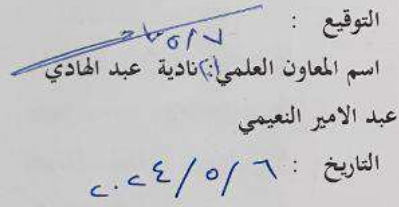 التوقيع :
٥/٧
اسم المعاون العلمي: نادية عبد الهادي
عبد الامير النعيمي
التاريخ : ٢٠٢٤/٥/٦